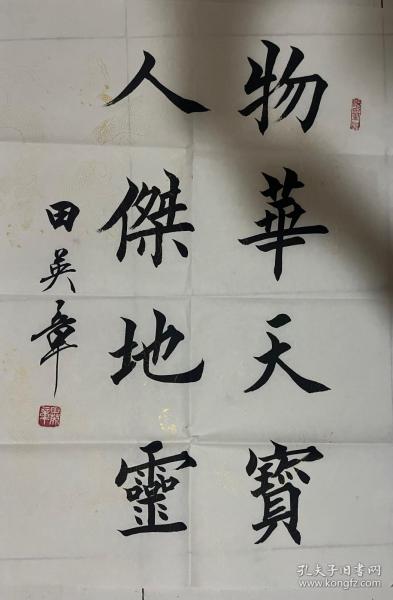 物華天寶
人傑地靈
田英章
孔夫子旧书网
www.kongfz.com